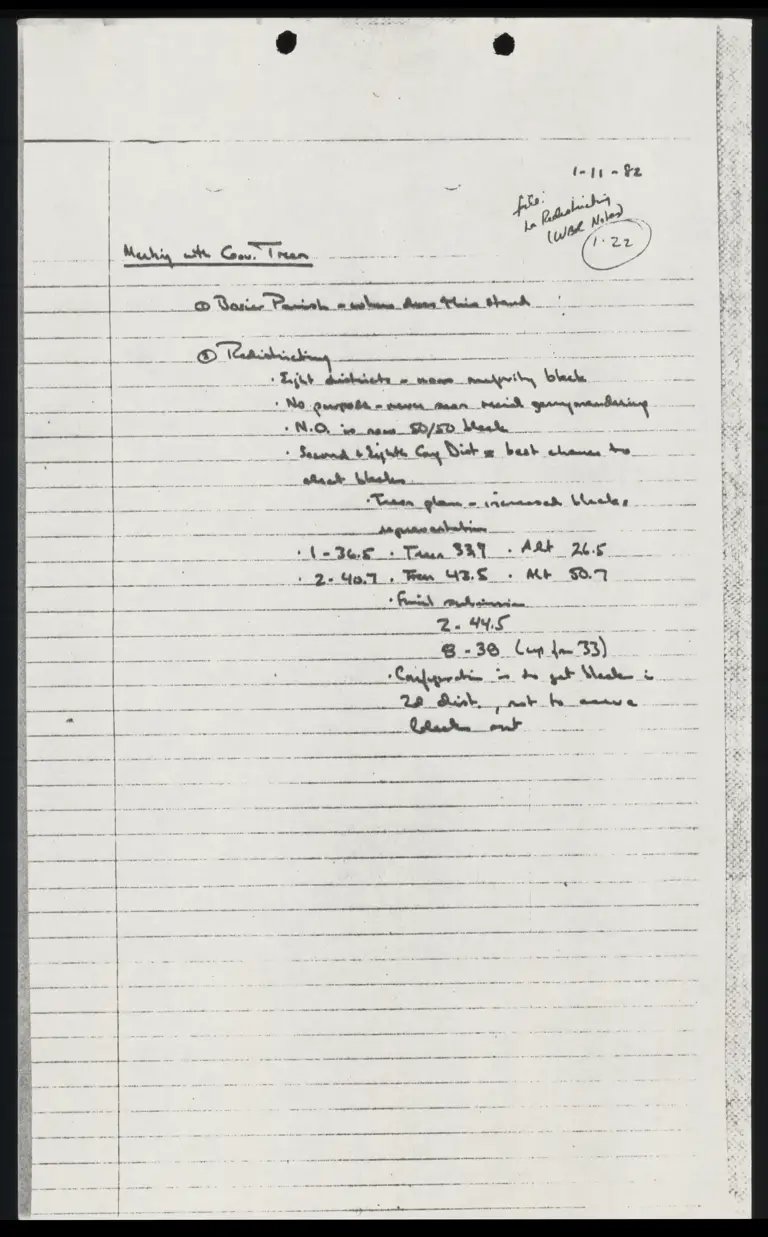 1-11-82
file:
La Redistricting
(WBR Notes)
1.22
Meeting with Gov. Treen
① Bossier Parish - where does this stand
② Redistricting
· Eight districts - none majority black
· No purpose - never seen racial gerrymandering
· N.O. is now 50/50 black
· Second & Eighth Cong Dist = best chance to
elect blacks
· Treen plan - increased blacks
representation
· 1 - 36.5 · Treen 33.9 · Alt 26.5
· 2 - 40.7 · Treen 43.5 · Alt 50.7
· Final submission
2 - 44.5
8 - 38 (up from 33)
· Configuration is to get blacks in
2d dist., not to carve
blacks out